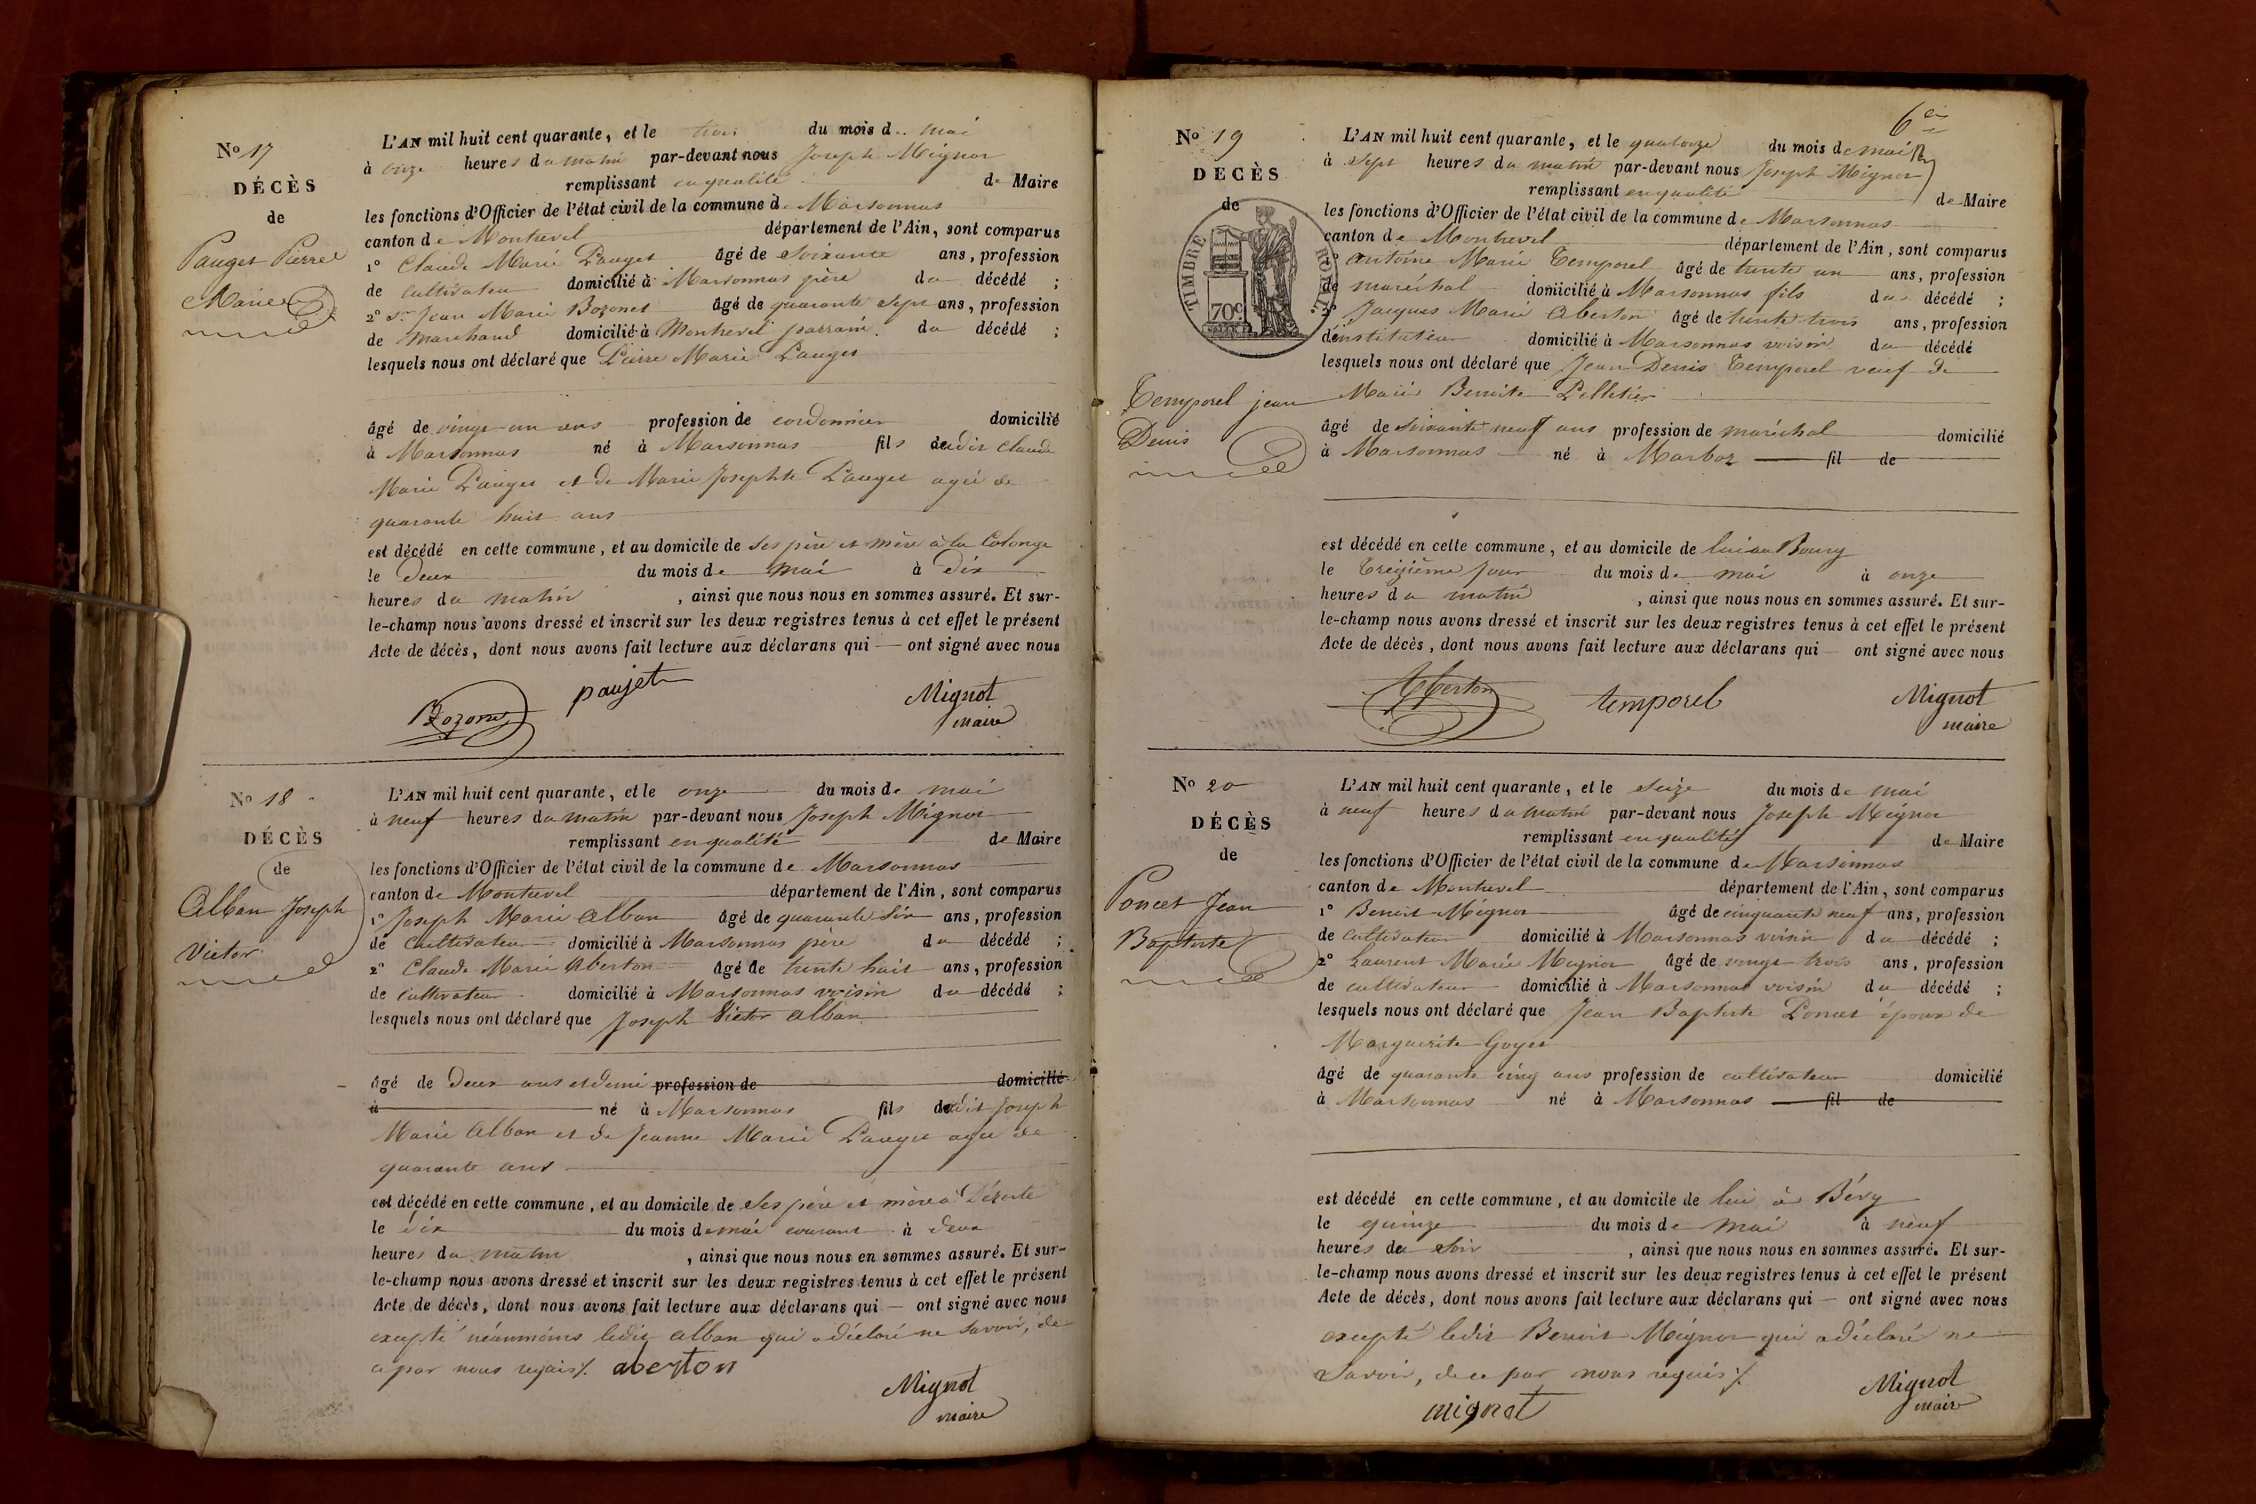 No 17
DÉCÈS
de
Pauget Pierre
Marie
L'AN mil huit cent quarante, et le trois du mois de mai
à onze heures du matin par-devant nous Joseph Mignot
remplissant en qualité de Maire
les fonctions d'Officier de l'état civil de la commune de Marsonnas
canton de Montrevel département de l'Ain, sont comparus
1º Claude Marie Pauget âgé de soixante ans, profession
de cultivateur domicilié à Marsonnas père du décédé ;
2º Sr Jean Marie Bozonet âgé de quarante sept ans, profession
de marchand domicilié à Montrevel parrain du décédé ;
lesquels nous ont déclaré que Pierre Marie Pauget
âgé de vingt-un ans profession de cordonnier domicilié
à Marsonnas né à Marsonnas fils dudit Claude
Marie Pauget et de Marie Josephte Pauget agée de
quarante huit ans
est décédé en cette commune, et au domicile de ses père et mère à la Colonge
le deux du mois de mai à dix
heures du matin, ainsi que nous nous en sommes assuré. Et sur-
le-champ nous avons dressé et inscrit sur les deux registres tenus à cet effet le présent
Acte de décès, dont nous avons fait lecture aux déclarans qui — ont signé avec nous
Bozonet paujet Mignot
maire
No 18
DÉCÈS
de
Alban Joseph
Victor
L'AN mil huit cent quarante, et le onze du mois de mai
à neuf heures du matin par-devant nous Joseph Mignot
remplissant en qualité de Maire
les fonctions d'Officier de l'état civil de la commune de Marsonnas
canton de Montrevel département de l'Ain, sont comparus
1º Joseph Marie Alban âgé de quarante six ans, profession
de cultivateur domicilié à Marsonnas père du décédé ;
2º Claude Marie Aberton âgé de trente huit ans, profession
de cultivateur domicilié à Marsonnas voisin du décédé ;
lesquels nous ont déclaré que Joseph Victor Alban
âgé de deux ans et demi profession de domicilié
à né à Marsonnas fils dudit Joseph
Marie Alban et de Jeanne Marie Pauget agée de
quarante ans
est décédé en cette commune, et au domicile de ses père et mère à
le dix du mois de mai courant à deux
heures du matin, ainsi que nous nous en sommes assuré. Et sur-
le-champ nous avons dressé et inscrit sur les deux registres tenus à cet effet le présent
Acte de décès, dont nous avons fait lecture aux déclarans qui — ont signé avec nous
excepté néanmoins ledit Alban qui a déclaré ne savoir, de
ce par nous requis /. aberton
Mignot
maire
6e
No 19
DECÈS
de
TIMBRE ROYAL
70c
Temporel jean
Denis
L'AN mil huit cent quarante, et le quatorze du mois de mai
à sept heures du matin par-devant nous Joseph Mignot
remplissant en qualité de Maire
les fonctions d'Officier de l'état civil de la commune de Marsonnas
canton de Montrevel département de l'Ain, sont comparus
1º Antoine Marie Temporel âgé de trente un ans, profession
de maréchal domicilié à Marsonnas fils du décédé ;
2º Jacques Marie Aberton âgé de trente trois ans, profession
d'instituteur domicilié à Marsonnas voisin du décédé
lesquels nous ont déclaré que Jean Denis Temporel veuf de
Marie Benoite Pelletier
âgé de soixante neuf ans profession de maréchal domicilié
à Marsonnas né à Marboz fil de
est décédé en cette commune, et au domicile de lui au Bourg
le treizième jour du mois de mai à onze
heures du matin, ainsi que nous nous en sommes assuré. Et sur-
le-champ nous avons dressé et inscrit sur les deux registres tenus à cet effet le présent
Acte de décès, dont nous avons fait lecture aux déclarans qui — ont signé avec nous
Aberton temporel Mignot
maire
No 20
DÉCÈS
de
Poncet Jean
Baptiste
L'AN mil huit cent quarante, et le seize du mois de mai
à neuf heures du matin par-devant nous Joseph Mignot
remplissant en qualité de Maire
les fonctions d'Officier de l'état civil de la commune de Marsonnas
canton de Montrevel département de l'Ain, sont comparus
1º Benoit Mignot âgé de cinquante neuf ans, profession
de cultivateur domicilié à Marsonnas voisin du décédé ;
2º Laurent Marie Mignot âgé de vingt trois ans, profession
de cultivateur domicilié à Marsonnas voisin du décédé ;
lesquels nous ont déclaré que Jean Baptiste Poncet époux de
Marguerite Goyet
âgé de quarante cinq ans profession de cultivateur domicilié
à Marsonnas né à Marsonnas fil de
est décédé en cette commune, et au domicile de lui à Bévy
le quinze du mois de mai à neuf
heures du soir, ainsi que nous nous en sommes assuré. Et sur-
le-champ nous avons dressé et inscrit sur les deux registres tenus à cet effet le présent
Acte de décès, dont nous avons fait lecture aux déclarans qui — ont signé avec nous
excepté ledit Benoit Mignot qui a déclaré ne
savoir, de ce par nous requis /.
mignot Mignot
maire